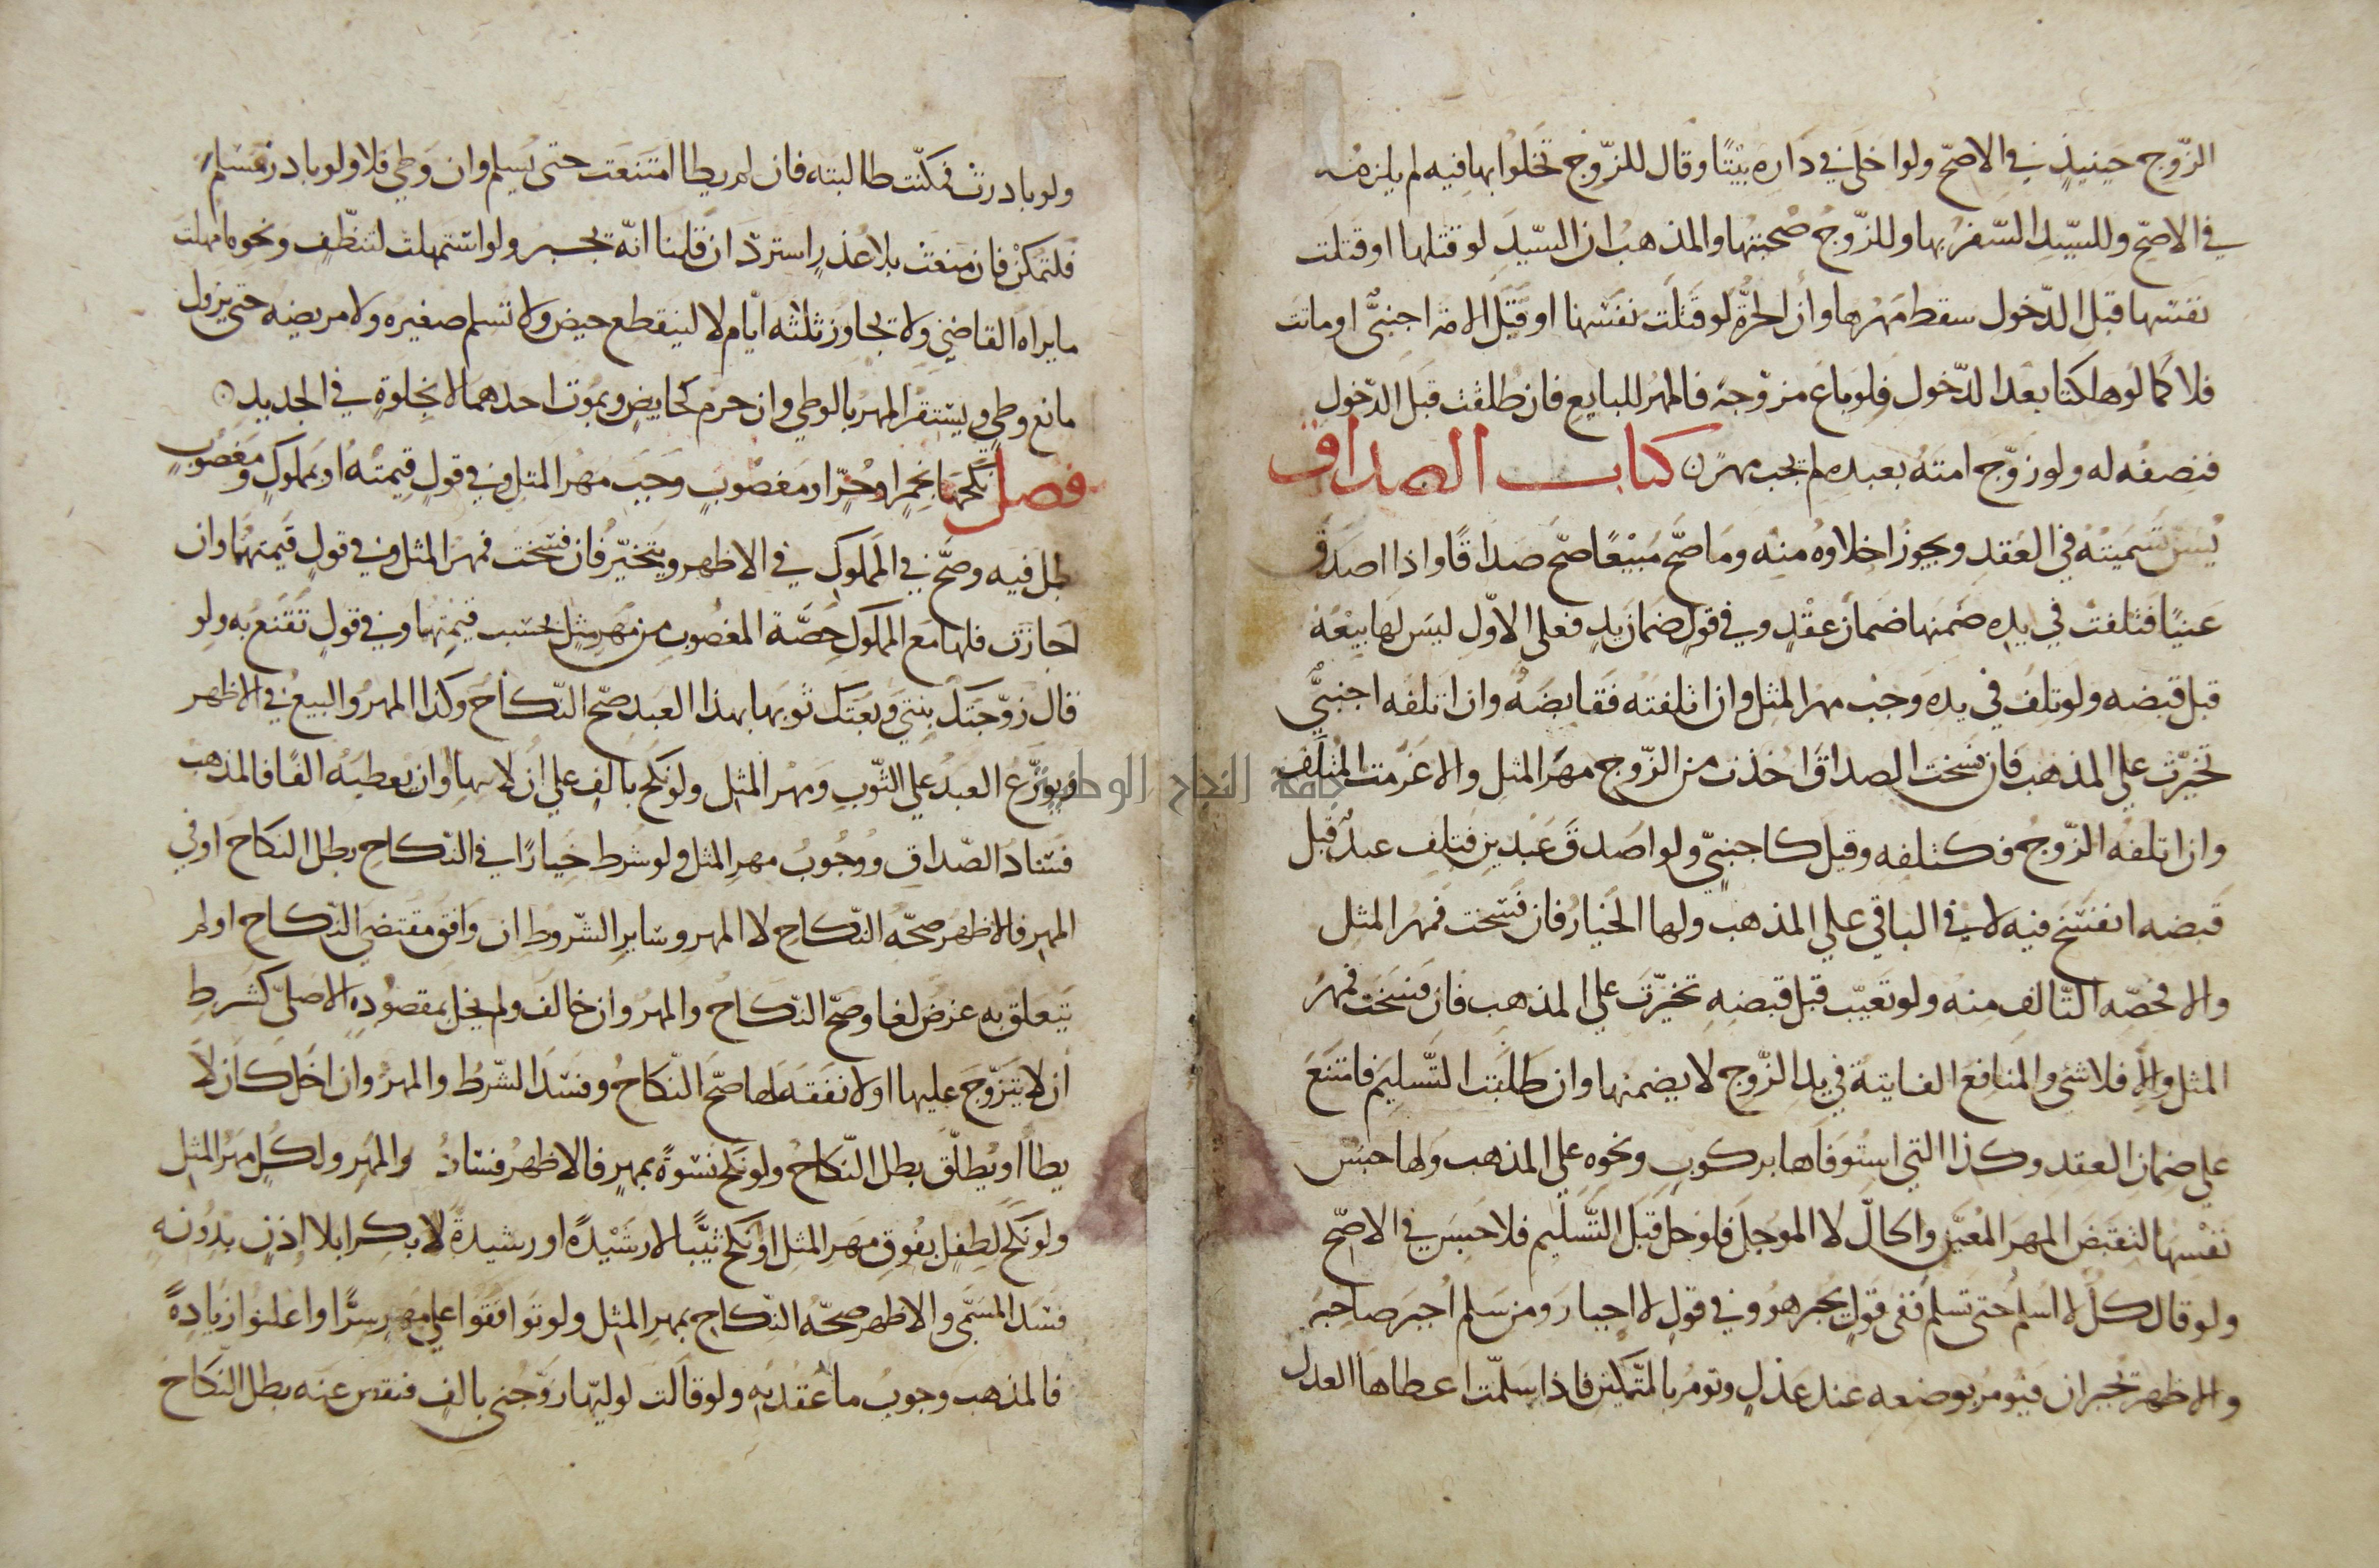 الزّوج حينيذٍ في الاصحّ ولو اخلى في داره بيتًا وقال للزّوج تخلوا بها فيه لم يلزمه
في الاصحّ وللسّيد السّفر بها وللزّوج صُحبتها والمذهب ان السّيدَ لو قتلها او قتلت
نفسها قبل الدّخول سقط مهرها وان الحرّة لو قتلت نفسها او قتل الامة اجنبيٌّ او ماتت
فلا كما لو هلكتا بعد الدّخول فلو باع مزوّجة فالمهر للبايع فان طلقت قبل الدّخول
فنصفه له ولو زوّج امته بعبده لم يجب مهرٌ ن كتاب الصداق
يُسَنّ تسميته في العقد ويجوز اخلاوه منه وما صحّ مبيعًا صحّ صداقًا واذا اصدق
عينًا فتلفت في يده ضمنها ضمان عقدٍ وفي قولٍ ضمان يدٍ فعلى الاوّل ليس لها بيعُه
قبل قبضه ولو تلف في يده وجب مهر المثل وان اتلفته فقابضة وان اتلفه اجنبيٌّ
تخيرّت على المذهب فان فسخت الصداق اخذت من الزّوج مهر المثل والا غرمت المتلف
وان اتلفه الزّوجُ فكتلفه وقيل كاجنبيّ ولو اصدق عبدين فتلف عبدٌ قبل
قبضه انفسخ فيه لا في الباقي على المذهب ولها الخيار فان فسخت فمهر المثل
والا فحصّه التّالف منه ولو تعيّب قبل قبضهِ تخيرّت على المذهب فان فسخت فمهرُ
المثل والا فلا شئ والمنافع الفايتة في يد الزّوج لا يضمنها وان طلبت التّسليم فامتنعَ
على ضمان العقد وكذا التي استوفاها بركوبٍ ونحوه على المذهب ولها حبس
نفسها لتقبض المهر المعيّن والحالّ لا الموجل فلو حل قبل التّسليم فلا حبس في الاصحّ
ولو قال كلّ لا اسلم حتى تسلم ففى قولٍ يجبر هو وفي قولٍ لا اجبار ومن سلم اجبر صاحبه
والاظهر يجبران فيومر بوضعه عند عدلٍ وتومر بالتّمكين فاذا سلمّت اعطاها العدل
ولو بادرت فمكنّت طالبته فان لم يطا امتنعت حتى يسلم وان وطي فلا ولو بادر فسلم
فلتمكن فان منعت بلا عذرٍ استردّ ان قلنا انّه يجبر ولو استمهلت لتنظّفٍ ونحوه امهلت
ما يراه القاضي ولا تجاوز ثلثه ايّام لا لينقطع حيض ولا تسلم صغيره ولا مريضه حتى يزول
مانع وطي ويستقر المهر بالوطي وان حرم كحايضٍ وبموت احدهما لا بخلوةٍ في الجديد
فصل نكحها بخمرٍ او حُرٍّ او مغصوب وجب مهر المثل وفي قولٍ قيمته او بمملوك ومغصوب
بطل فيه وصحّ في المملوك في الاظهر ويتخيّر فان فسخت فمهر المثل وفي قولٍ قيمتهما وان
اجازت فلها مع المملوك حصّة المغصوب من مهر مثلٍ بحسب قيمتهما وفي قولٍ تقنع به ولو
قال زوّجتك بنتي وبعتك ثوبها بهذا العبد صحّ النّكاح وكذا المهر والبيع في الاظهر
ويوزّع العبد على الثّوب ومهر المثل ولو نكح بالفٍ على ان لابيها او ان يعطيه الفًا فالمذهب
فسادُ الصّداق ووجوبُ مهر المثل ولو شرط خيارًا في النّكاح بطل النكاح او في
المهر فالاظهر صحّة النّكاح لا المهر وساير الشّروط ان وافق مقتضى النّكاح او لم
يتعلق به غرضٌ لغا وصحّ النّكاح والمهر وان خالف ولم يخل بمقصوده الاصلي كشرط
ان لا يتزوّج عليها او لا نفقه لها صحّ النّكاحُ وفسد الشّرط والمهر وان اخلّ كان لا
يطا او يطلّق بطل النّكاح ولو نكح نسوةً بمهرٍ فالاظهر فساد والمهر ولكل مهر المثل
ولو نكح لطفلٍ بفوق مهر المثل او نكح ثيّبا لا رشيدةً او رشيدةً لا بكرا بلا اذن بدونه
فسد المسمّى والاظهر صحّة النّكاح بمهر المثل ولو توافقوا على مهرٍ سرًّا واعلنوا زيادةً
فالمذهب وجوبُ ما عُقد به ولو قالت لوليّها زوّجنى بالفٍ فنقص عنه بطل النّكاح
جامعة النجاح الوطنية